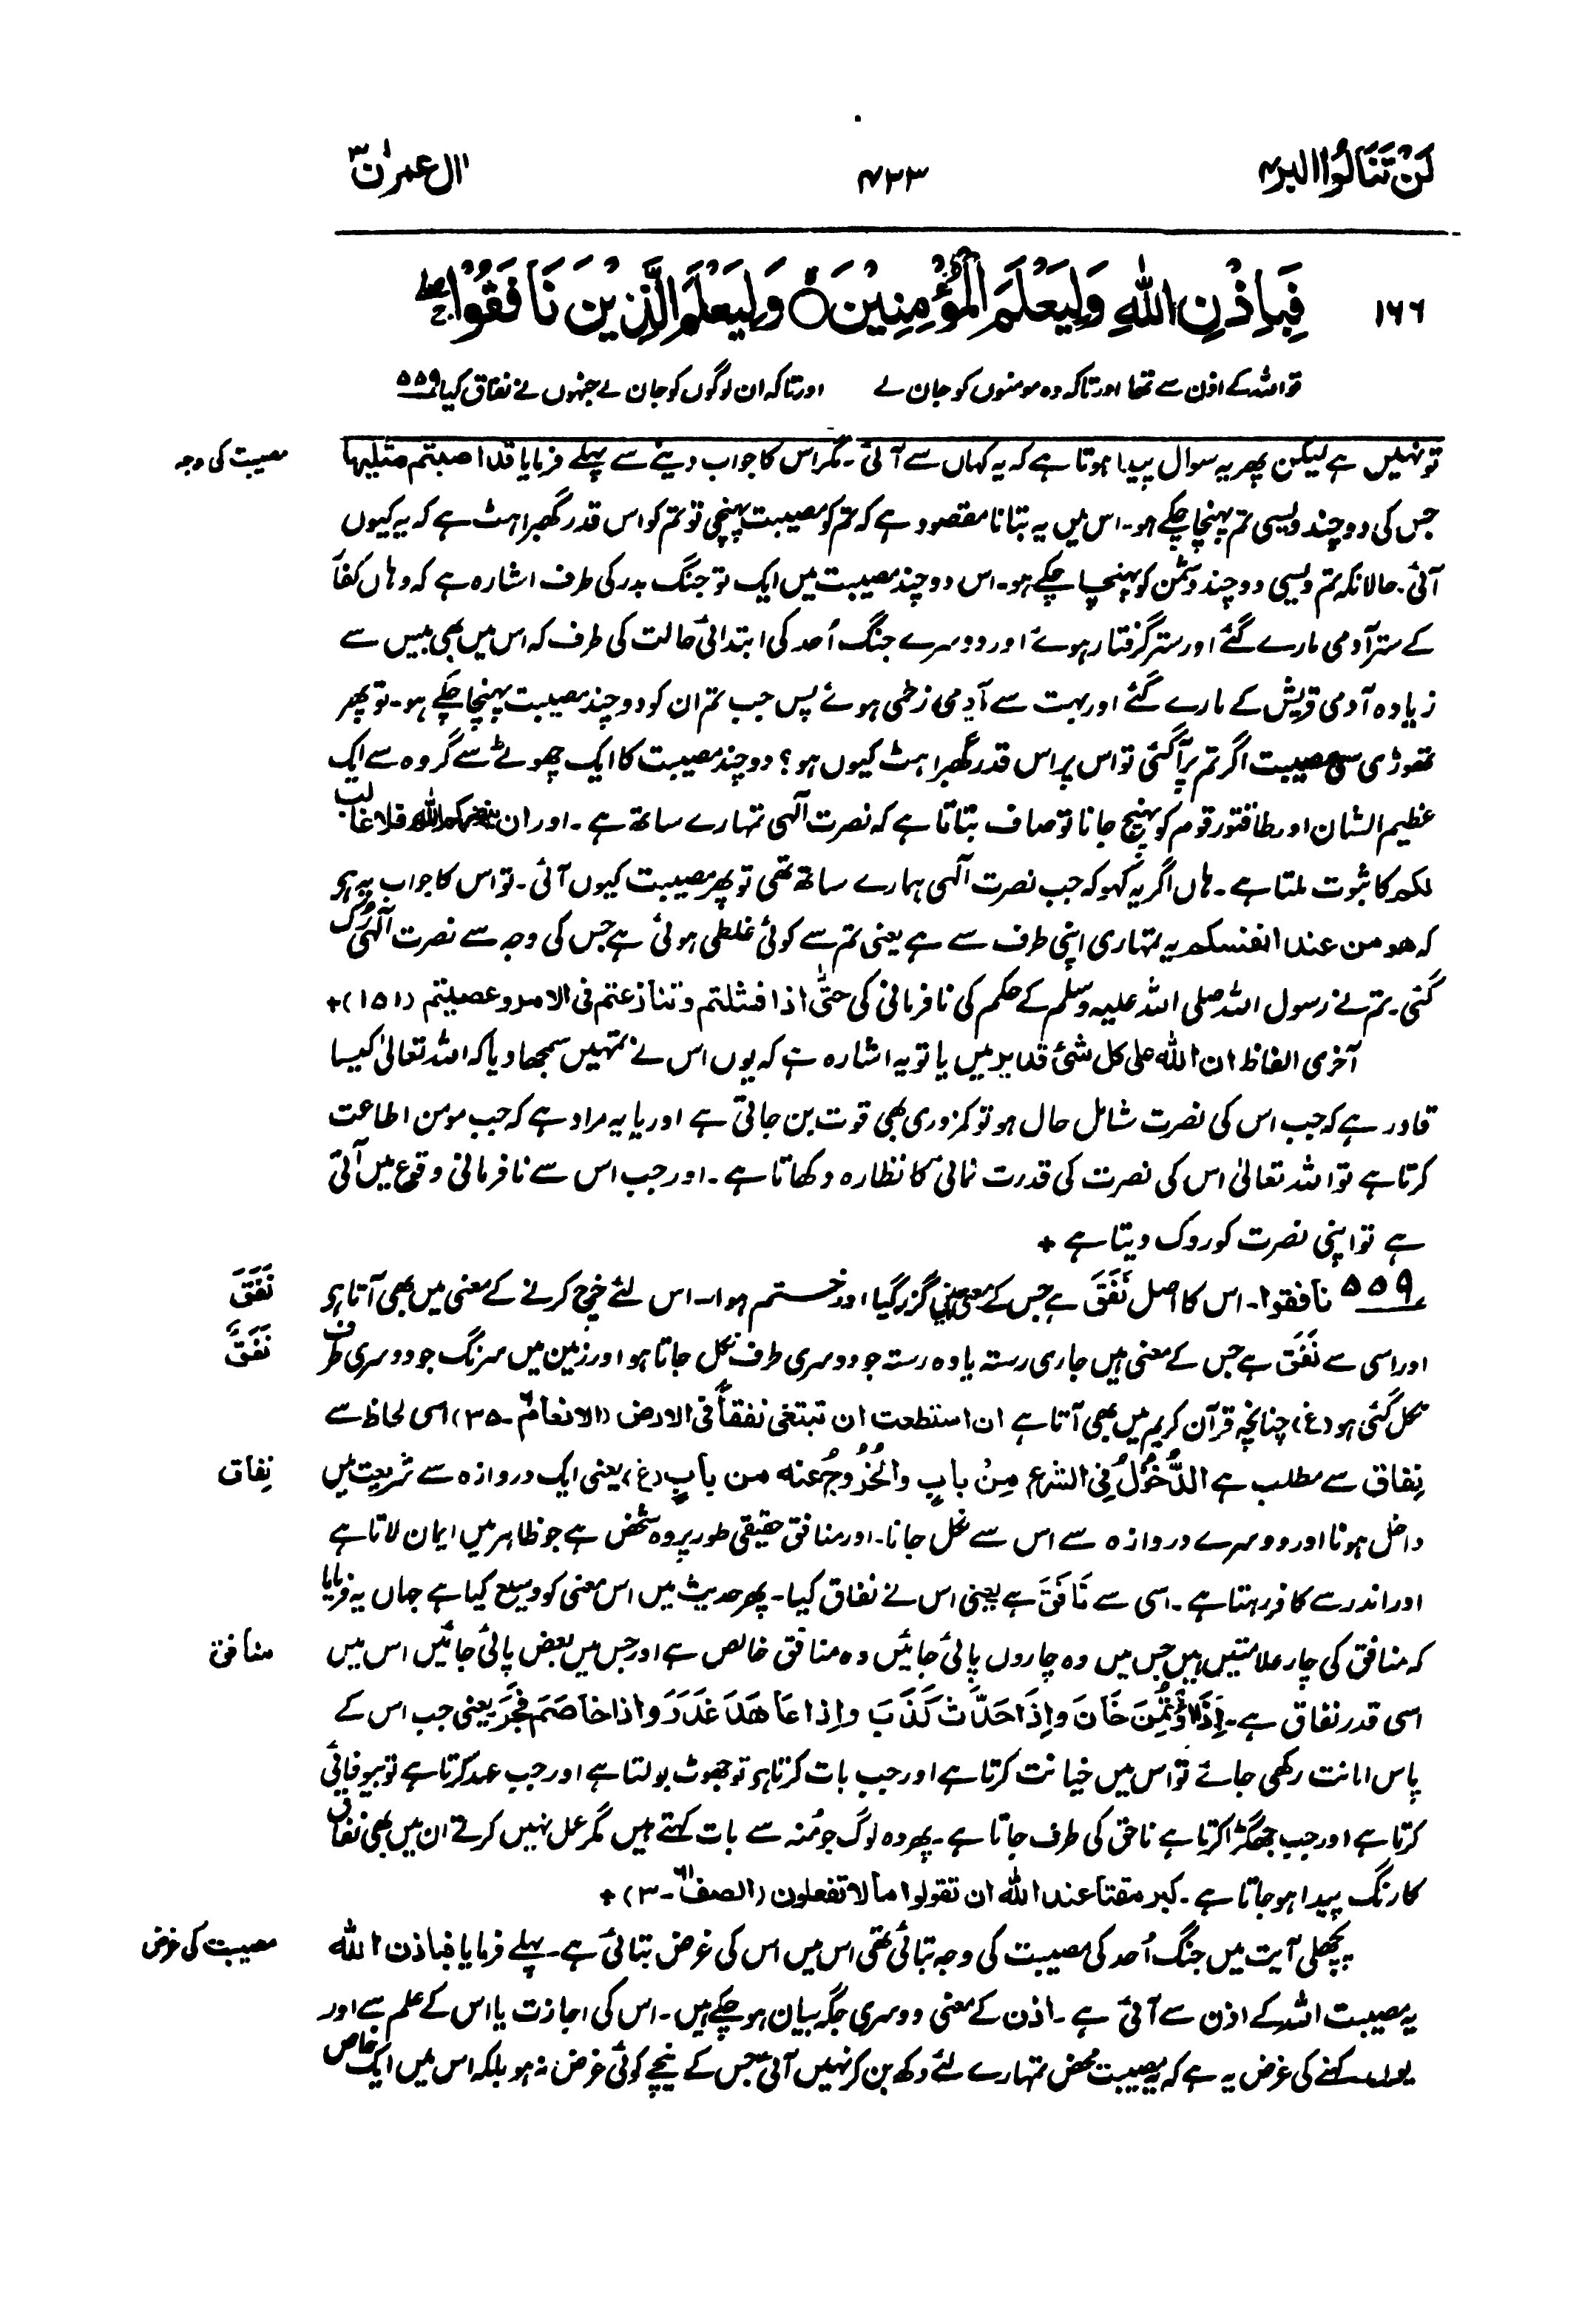 لَنْ تَنَالُوا البر۴
۴۲۳
اٰل عمرٰن۳
۱۶۶
فَبِاِذْنِ اللّٰهِ وَلِيَعْلَمَ الْمُؤْمِنِيْنَ ۝ وَلِيَعْلَمَ الَّذِيْنَ نَافَقُوْا ۚۖ
تو اللہ کے اذن سے تھا اور تاکہ وہ مومنوں کو جان لے اور تاکہ ان لوگوں کو جان لے جنہوں نے نفاق کیا ۵۵۹
مصیبت کی وجہ
تو نہیں ہے لیکن پھر یہ سوال پیدا ہوتا ہے کہ یہ کہاں سے آئی۔ مگر اس کا جواب دینے سے پہلے فرمایا قد اصبتم مثلیھا
جس کی دو چند ویسی تم پہنچا چکے ہو۔ اس میں یہ بتانا مقصود ہے کہ تم کو مصیبت پہنچی تو تم کو اس قدر گھبراہٹ ہے کہ یہ کیوں
آئی۔ حالانکہ تم ویسی دو چند دشمن کو پہنچا چکے ہو۔ اس دو چند مصیبت میں ایک تو جنگ بدر کی طرف اشارہ ہے کہ وہاں کفار
کے ستر آدمی مارے گئے اور ستر گرفتار ہوئے اور دوسرے جنگ اُحد کی ابتدائی حالت کی طرف کہ اس میں بھی بیس سے
زیادہ آدمی قریش کے مارے گئے اور بہت سے آدمی زخمی ہوئے پس جب تم ان کو دو چند مصیبت پہنچا چکے ہو۔ تو پھر
تھوڑی سی مصیبت اگر تم پر آگئی تو اس پر اس قدر گھبراہٹ کیوں ہو؟ دو چند مصیبت کا ایک چھوٹے سے گروہ سے ایک
عظیم الشان اور طاقتور قوم کو پہنچ جانا تو صاف بتاتا ہے کہ نصرت الٰہی تمہارے ساتھ ہے۔ اور ان ینصرکم اللہ فلا غالب
لکم کا ثبوت ملتا ہے۔ ہاں اگر یہ کہو کہ جب نصرت الٰہی ہمارے ساتھ تھی تو پھر مصیبت کیوں آئی۔ تو اس کا جواب یہ ہو
کہ ھو من عند انفسکم یہ تمہاری اپنی طرف سے ہے یعنی تم سے کوئی غلطی ہوئی ہے جس کی وجہ سے نصرت الٰہی رُک
گئی۔ تم نے رسول اللہ صلی اللہ علیہ وسلم کے حکم کی نافرمانی کی حتّٰی اذا فشلتم وتنازعتم فی الامر وعصیتم (۱۵۱)+
آخری الفاظ ان اللہ علی کل شیٔ قدیر میں یا تو یہ اشارہ ہے کہ یوں اس نے تمہیں سمجھا دیا کہ اللہ تعالیٰ کیسا
قادر ہے کہ جب اس کی نصرت شامل حال ہو تو کمزوری بھی قوت بن جاتی ہے اور یا یہ مراد ہے کہ جب مومن اطاعت
کرتا ہے تو اللہ تعالیٰ اس کی نصرت کی قدرت نمائی کا نظارہ دکھاتا ہے۔ اور جب اس سے نافرمانی وقوع میں آتی
ہے تو اپنی نصرت کو روک دیتا ہے +
نَفَقَ
۵۵۹ نافقوا۔ اس کا اصل نَفَقَ ہے جس کے معنی ہیں گزر گیا اور ختم ہوا۔ اس لئے خرچ کرنے کے معنی میں بھی آتا ہو
نَفَقٌ
اور اسی سے نَفَق ہے جس کے معنی ہیں جاری رستہ یا وہ رستہ جو دوسری طرف نکل جاتا ہو اور زمین میں سرنگ جو دوسری طرف
نکل گئی ہو (غ) چنانچہ قرآن کریم میں بھی آتا ہے ان استطعت ان تبتغی نفقاً فی الارض (الانعام۶-۳۵) اسی لحاظ سے
نِفاق
نِفاق سے مطلب ہے الدُّخُوْلُ فِی الشرع مِنْ بابٍ والخُرُوجُ عنه من بابٍ (غ) یعنی ایک دروازہ سے شریعت میں
داخل ہونا اور دوسرے دروازہ سے اس سے نکل جانا۔ اور منافق حقیقی طور پر وہ شخص ہے جو ظاہر میں ایمان لاتا ہے
اور اندر سے کافر رہتا ہے۔ اسی سے نَافَقَ ہے یعنی اس نے نفاق کیا۔ پھر حدیث میں اس معنی کو وسیع کیا ہے جہاں یہ فرمایا
منافق
کہ منافق کی چار علامتیں ہیں جس میں وہ چاروں پائی جائیں وہ منافق خالص ہے اور جس میں بعض پائی جائیں اس میں
اسی قدر نفاق ہے۔ اِذَا اؤْتُمِنَ خَانَ واِذَا حَدَّثَ كَذَبَ واِذا عَاهَدَ غَدَرَ واذا خَاصَمَ فَجَرَ یعنی جب اس کے
پاس امانت رکھی جائے تو اس میں خیانت کرتا ہے اور جب بات کرتا ہو تو جھوٹ بولتا ہے اور جب عہد کرتا ہے تو بیوفائی
کرتا ہے اور جب جھگڑا کرتا ہے ناحق کی طرف جاتا ہے۔ پھر وہ لوگ جو مُنہ سے بات کہتے ہیں مگر عمل نہیں کرتے ان میں بھی نفاق
کا رنگ پیدا ہو جاتا ہے۔ کبر مقتا عند اللہ ان تقولوا ما لا تفعلون (الصف۶۱-۳) +
مصیبت کی غرض
پچھلی آیت میں جنگ اُحد کی مصیبت کی وجہ بتائی تھی اس میں اس کی غرض بتائی ہے۔ پہلے فرمایا فباذن اللہ
یہ مصیبت اللہ کے اذن سے آئی ہے۔ اذن کے معنی دوسری جگہ بیان ہو چکے ہیں۔ اس کی اجازت یا اس کے علم سے اور
یوں کہنے کی غرض یہ ہے کہ یہ مصیبت محض تمہارے لئے دکھ بن کر نہیں آئی جس کے نیچے کوئی غرض نہ ہو بلکہ اس میں ایک خاص